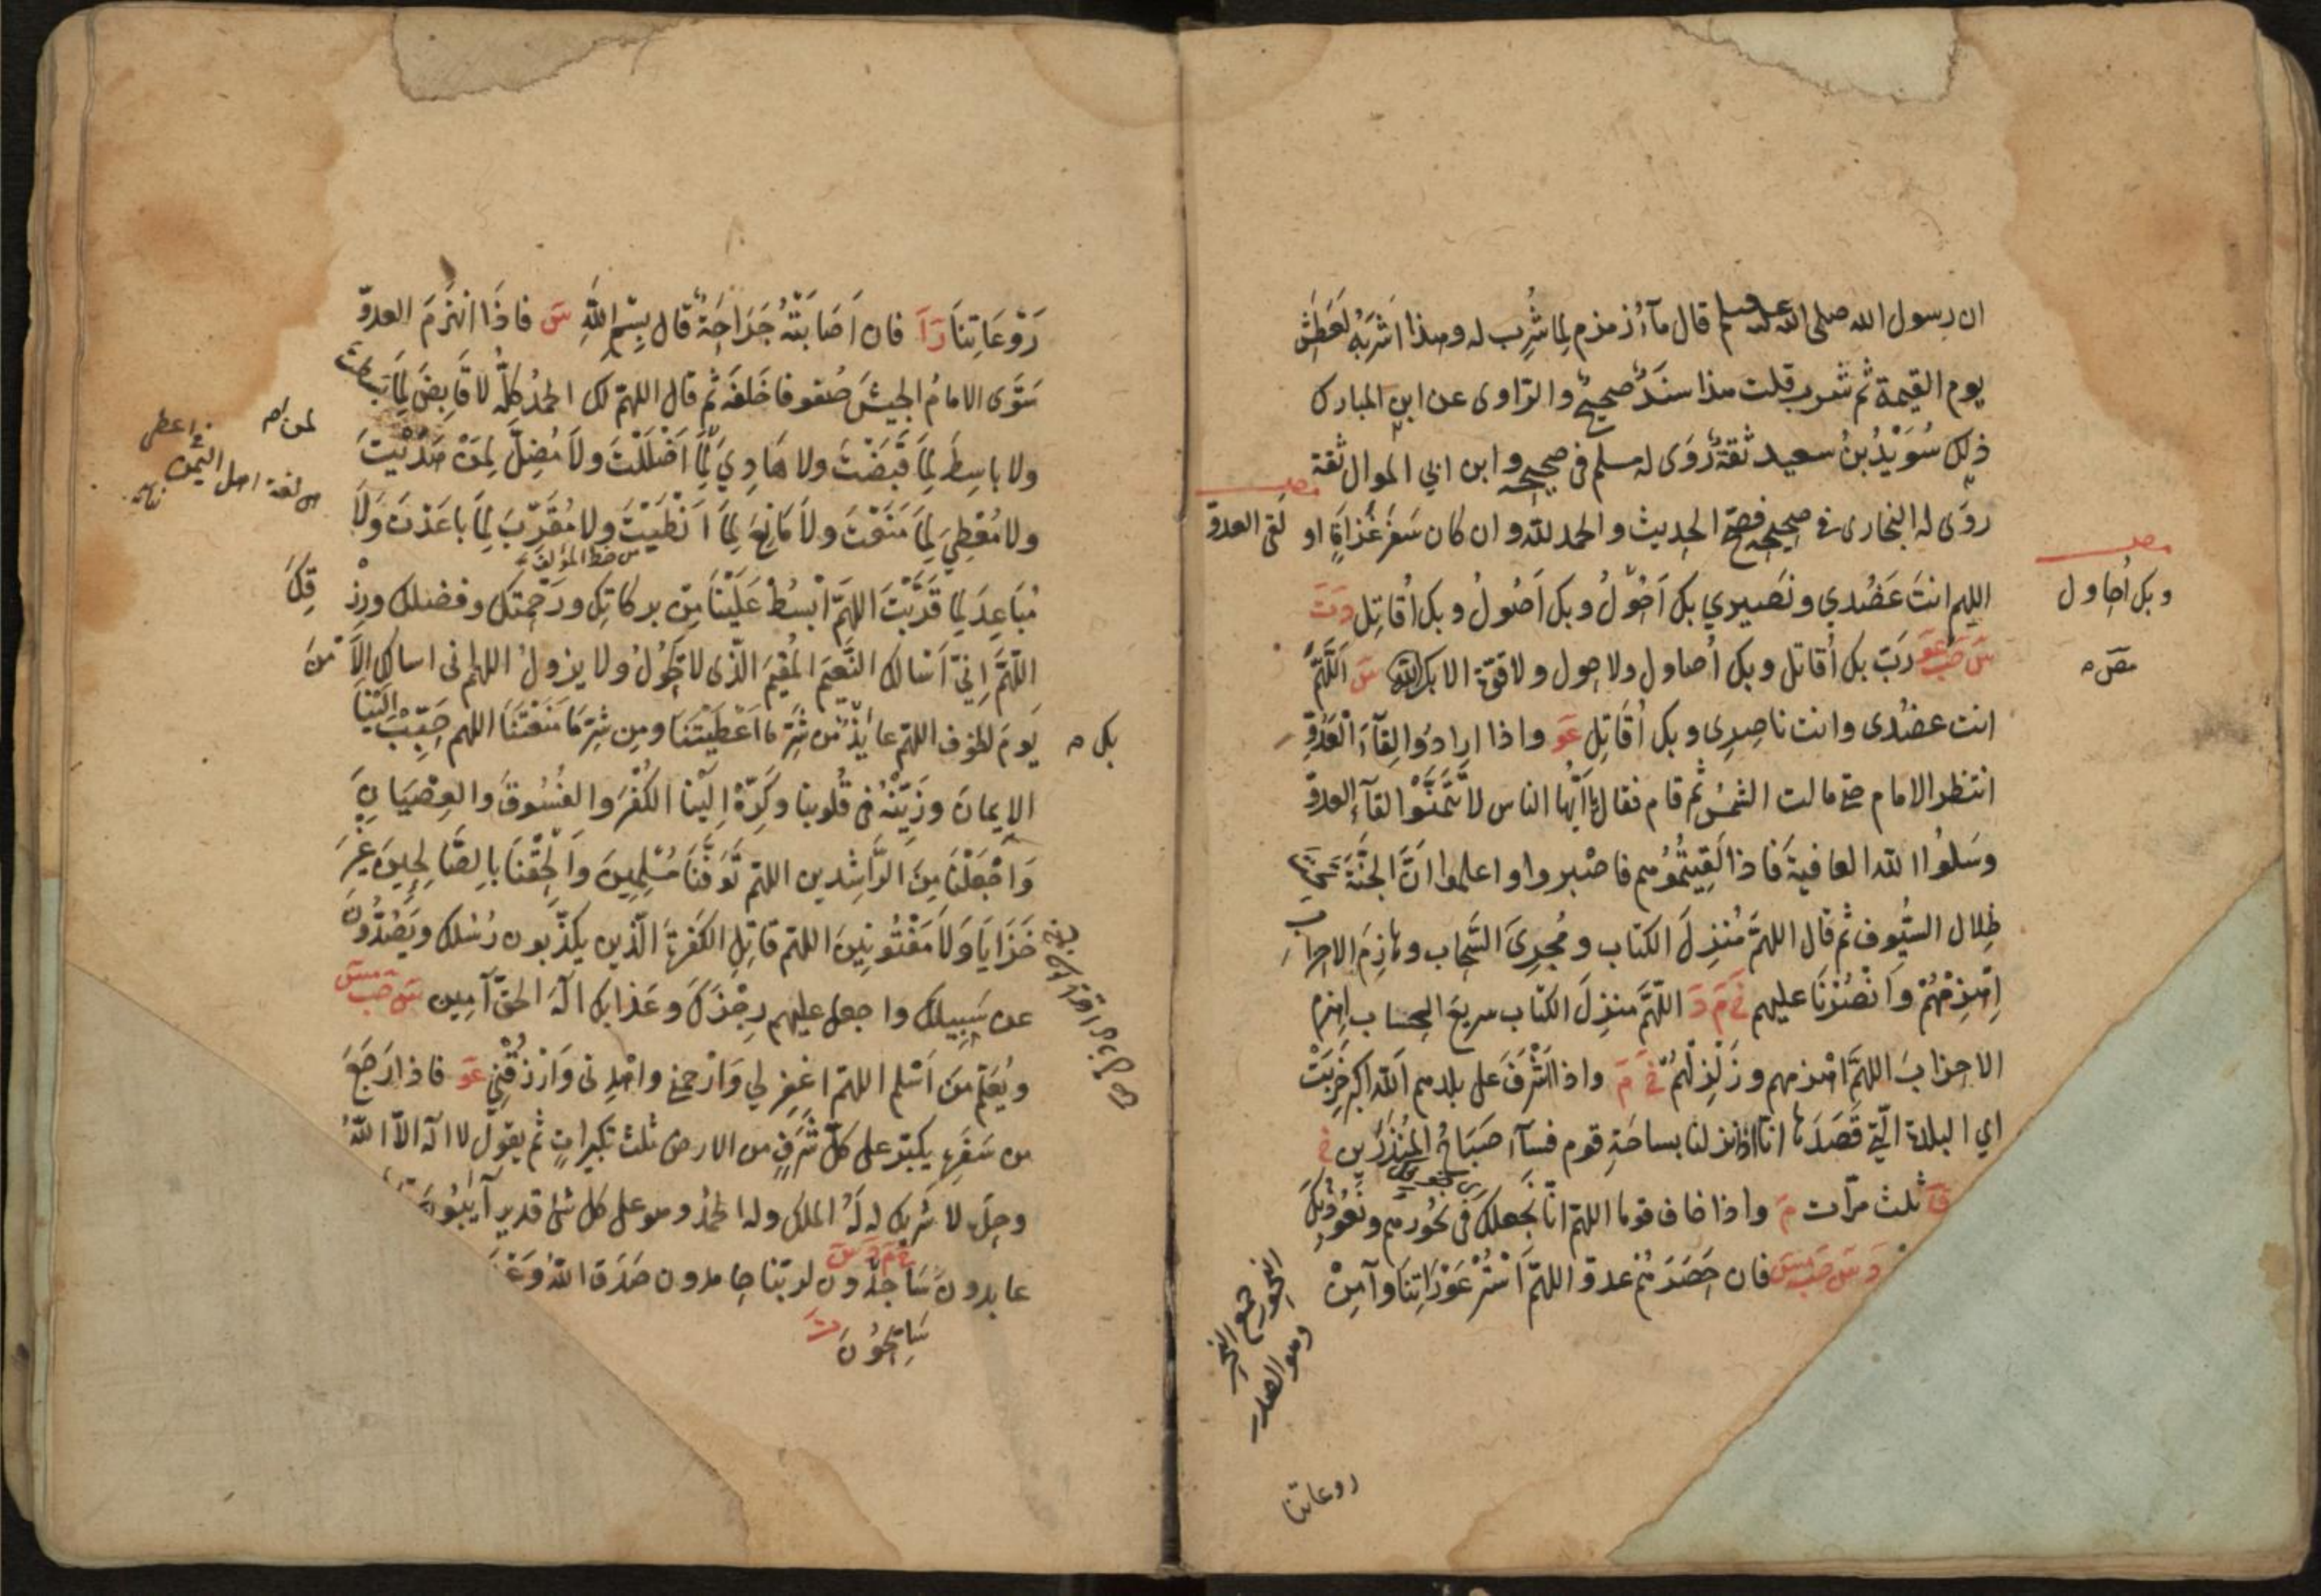 ان رسول الله صلى الله عليه وسلم قال مآء زمزم لِما شُرِب له وهذا اَشْرَبُهُ لعَطَشِ
يوم القيمة ثم شرب قلت هذا سنَدٌ صحيحٌ والرّاوى عن ابن المبارك
ذلك سُوَيْدُ بنُ سعيد ثقةٌ رَوَى له مسلم فى صحيحه وابن ابي الموال ثقة
روَى له البخارى فى صحيحه فصحّ الحديث والحمد لله وان كان سَفَرَ غَزَاةٍ او لقى العدوّ
اللهم انتَ عَضُدِي ونَصِيرِي بكَ اَحُوْلُ وبكَ اَصُولُ وبكَ اُقاتِل دَ تَ
سَ حبَ عَوَ رَبّ بكَ اُقاتل وبكَ اُصاول ولا حول ولا قوّة الا بك سَ اَللَّهمَّ
انت عضُدى وانت ناصِرِى وبكَ اُقَاتِل عَوَ واذا ارادُوا لِقآءَ العَدُوِّ
انتظر الامام حتى مالت الشمسُ ثم قام فقال يا اَيُّها الناس لا تَتَمَنَّوْا لقآءَ العدوّ
وسَلُوا الله العافيةَ فاذا لَقِيتُمُوهم فاصْبروا واعلموا اَنَّ الجنَّةَ تحتَ
ظِلال السُّيوف ثم قال اللهمَّ مُنزِلَ الكتاب ومُجرِىَ السَّحاب وهازِمَ الاحزاب
اِهْزِمْهُمْ وَانْصُرْنَا عليهم خَ مَ دَ اللّهمَّ منزِلَ الكتاب سريعَ الحساب اهزم
الاحزابَ اللهمَّ اهزمهم وزَلْزِلْهُمْ خَ مَ واذا اَشْرَفَ على بلدهم اَللّه اكبر خَرِبَتْ
اي البلدة الّتي قَصَدَها انّا اذا نزلنا بساحَةِ قوم فسآءَ صَبَاحُ المُنْذَرِين خَ
ثلث مرّات مَ واذا خاف قوما اللهمّ انّا نَجعلك فى نحُورهم ونعُوذُ بكَ
من شرورهم
دَ سَ حبَ مسَ فان حَصَرَهُمْ عدوّ اللهمّ اسْتُرْ عَوْرَاتِنَا وآمِنْ
وبك اُحاول
مصَ
النحور جمع النحر
وهو الصدر
روعاتنا
رَوْعَاتِنَا رَ اَ فان اَصَابَتْهُ جَرَاحَةٌ قال بِسْمِ اللّهِ سَ فاذا انهَزَمَ العدوّ
سَوَّى الامامُ الجيشَ صُفوفا خَلفَه ثم قال اللهمّ لك الحمدُ كلُّه لا قَابِضَ لِمَا بَسَطْتَ
ولا باسِطَ لِمَا قَبَضْتَ ولا هَادِيَ لِمَا اَضْلَلْتَ ولا مُضِلَّ لِمَنْ هَدَيْتَ
ولا مُعْطِيَ لِمَا مَنَعْتَ ولا مَانِعَ لِمَا اَنْطَيْتَ ولا مُقَرِّبَ لِمَا باعَدْتَ وَلَا
من خط المؤلف
مُبَاعِدَ لِمَا قَرَّبْتَ اللهمّ ابْسُطْ عَلَيْنَا مِنْ بركاتِك ورَحْمتك وفضلك ورِزْقِكَ
اللّهمَّ اِنّي اَسْالك النَّعِيمَ المُقِيمَ الذى لا يَحُولُ ولا يزولُ اللهم انى اسالك الاَمْنَ
يومَ الخوف اللهمّ عائِذٌ من شَرِّ ما اَعْطَيْتَنَا ومِن شَرِّ مَا مَنَعْتَنَا اللهم حَبِّبْ اِلَيْنَا
الايمانَ وزَيِّنْهُ فى قُلُوبنا وكَرِّهْ اِلَيْنا الكُفْرَ والفُسُوقَ والعِصْيَانَ
وَاجْعَلْنَا مِنَ الرَّاشِدين اللهمّ تَوَفَّنَا مُسْلِمِينَ وَاَلْحِقْنَا بِالصَّالِحِينَ غَيْرَ
خَزَايَا وَلَا مَفْتُونِينَ اللهمّ قاتِلِ الكَفَرةَ الّذين يكذّبون رُسُلك ويَصُدُّونَ
عن سَبِيلك واجعل عليهم رِجْزَكَ وعَذابك اِلهَ الحقّ آمِين سَ حبَ مسَ
ويُعَلِّم مَن اَسْلم اللهمّ اغْفِر لي وَارْحمني واهْدِنى وَارْزُقْنِي عَوَ فاذا رَجَعَ
من سَفَرِه يكبّر على كلّ شَرَفٍ من الارض ثلث تكبيراتٍ ثم يقول لا اله الاّ اللهُ
وحدَه لا شريك له لَهُ الملك وله الحمدُ وهو على كل شئ قدير آيِبُونَ
عابدون سَاجِدُون لربّنا حامدون صَدَقَ اللهُ وَعْدَ
خَ مَ دَ سَ تَ
سَائِحُونَ تَ
لمن
اعطى
من لغة اهل اليمن
بك